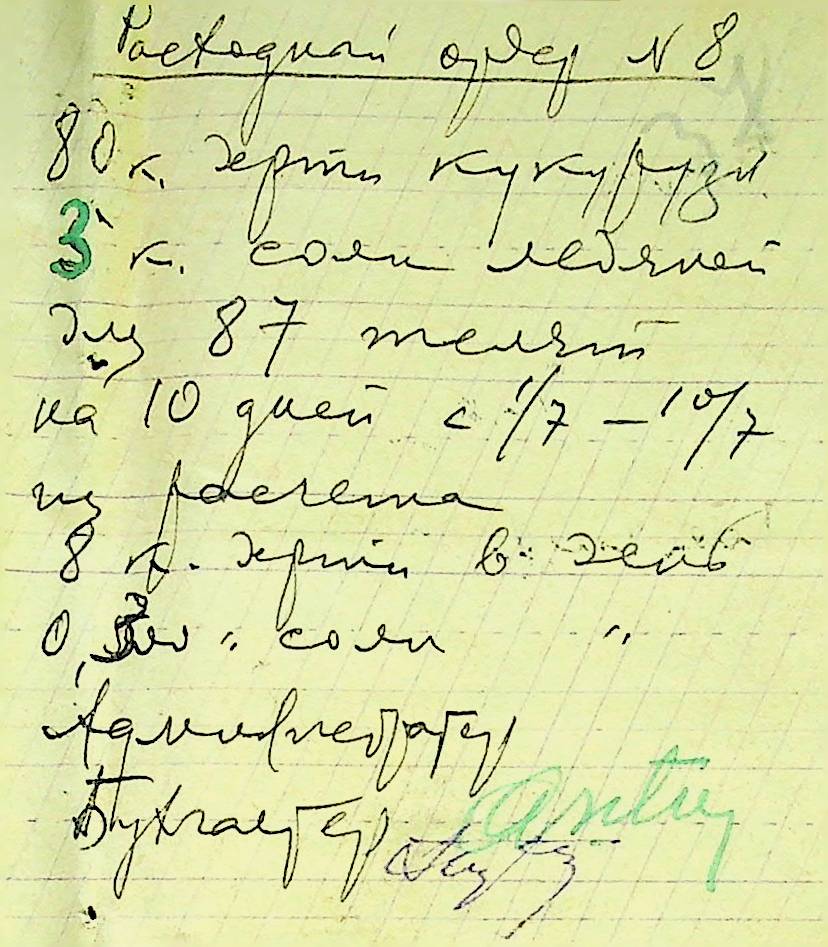 Расходный ордер N 8
80 к. дерти кукурузы
3 к. соли ледяной
для 87 телят
на 10 дней с 1/7 – 10/7
из расчета
8 к. дерти в день
0,3 " соли "
Администратор
Бухгалтер